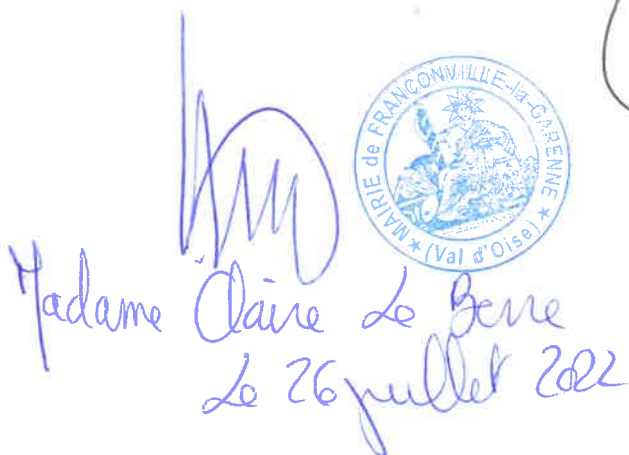 MAIRIE de FRANCONVILLE-la-GARENNE
★ (Val d'Oise) ★
Madame Claire Le Berre
Le 26 juillet 2022